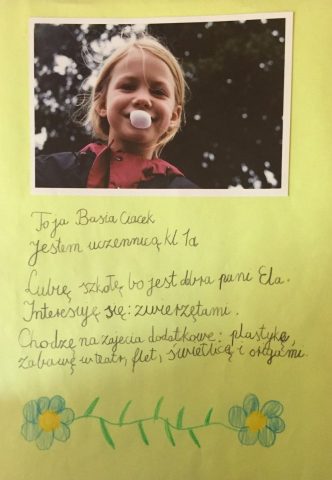 To ja Basia Ciacek
Jestem uczennicą kl 1a
Lubię szkołę bo jest dobra pani Ela.
Interesuję się: zwierzętami.
Chodzę na zajecia dodatkowe: plastykę,
zabawę w teatr, flet, świetlicą i origami.